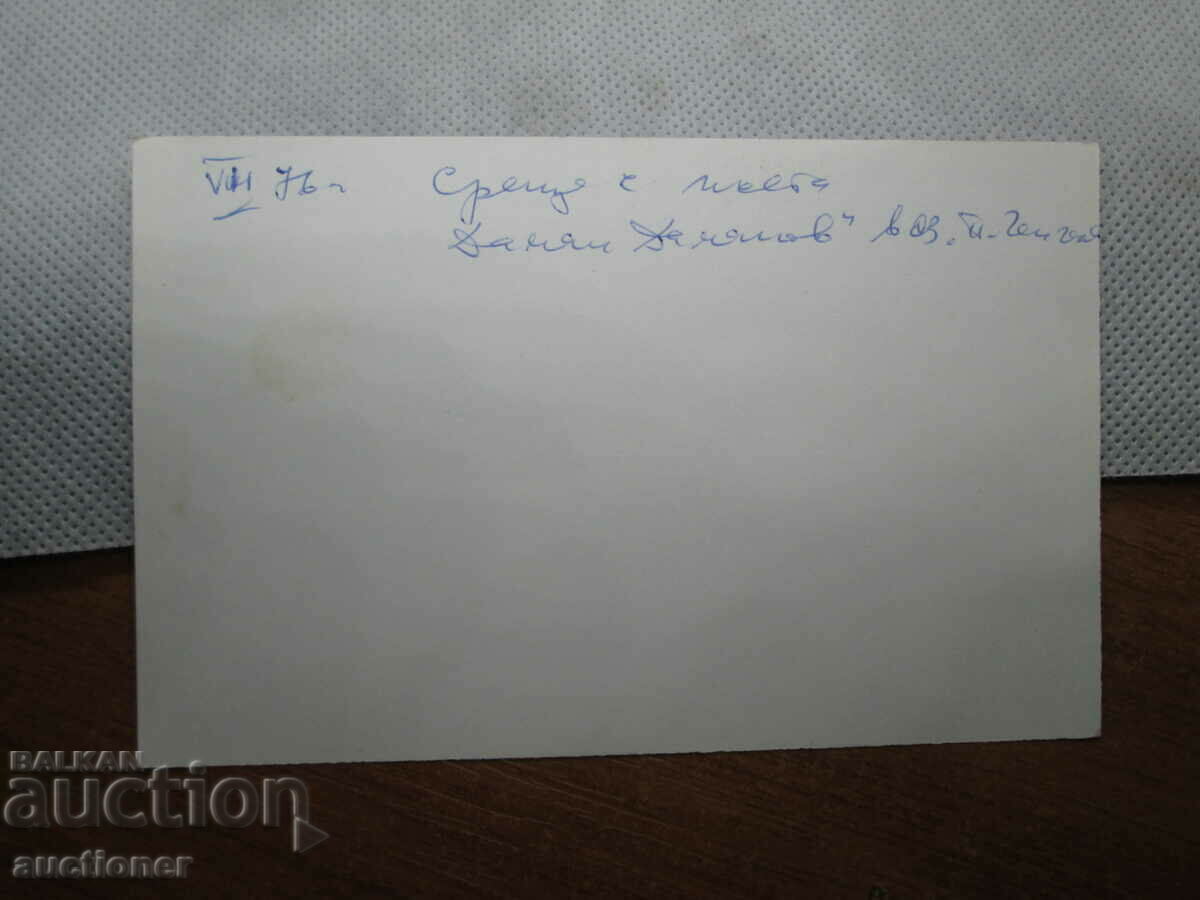 VIII 76 г. Среща с поета
Дамян Дамянов" в ОЗ „П.
BALKAN
auction
auctioner